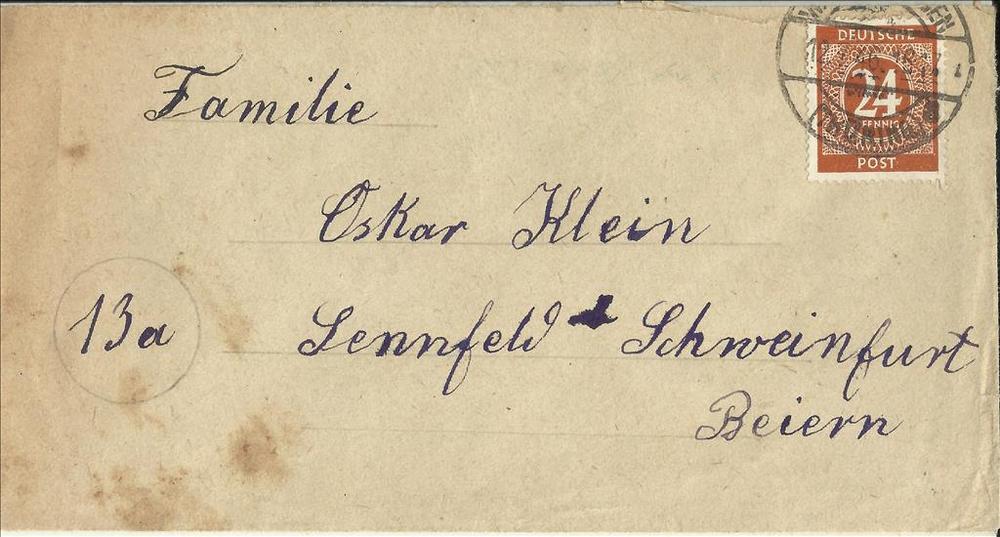 DEUTSCHE
24
PFENNIG
POST
Familie
Oskar Klein
13a
Sennfeld Schweinfurt
Beiern